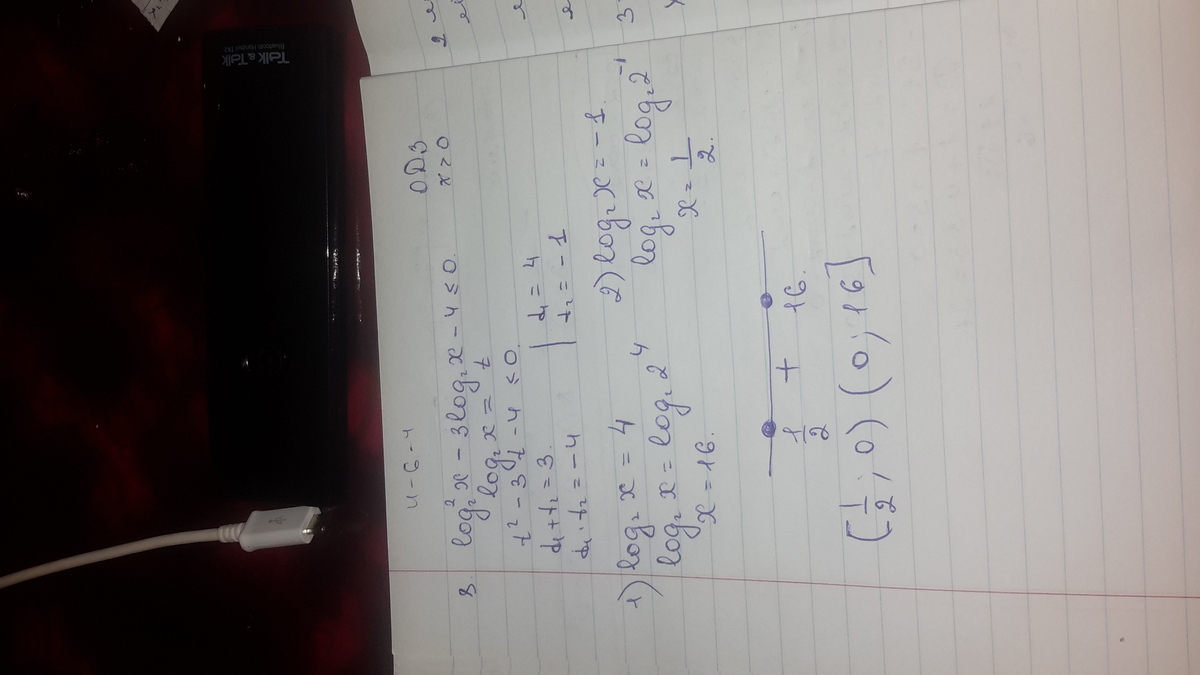 Talk & Talk
4-6-4
ОДЗ
3. log₂²x - 3log₂x - 4 ≤ 0.
x > 0
log₂x = t
t² - 3t - 4 ≤ 0
t₁ + t₂ = 3
t₁ · t₂ = -4
t₁ = 4
t₂ = -1
1) log₂x = 4
log₂x = log₂2⁴
x = 16.
2) log₂x = -1.
log₂x = log₂2⁻¹
x = 1/2.
1/2 + 16.
[1/2; 0) (0; 16]